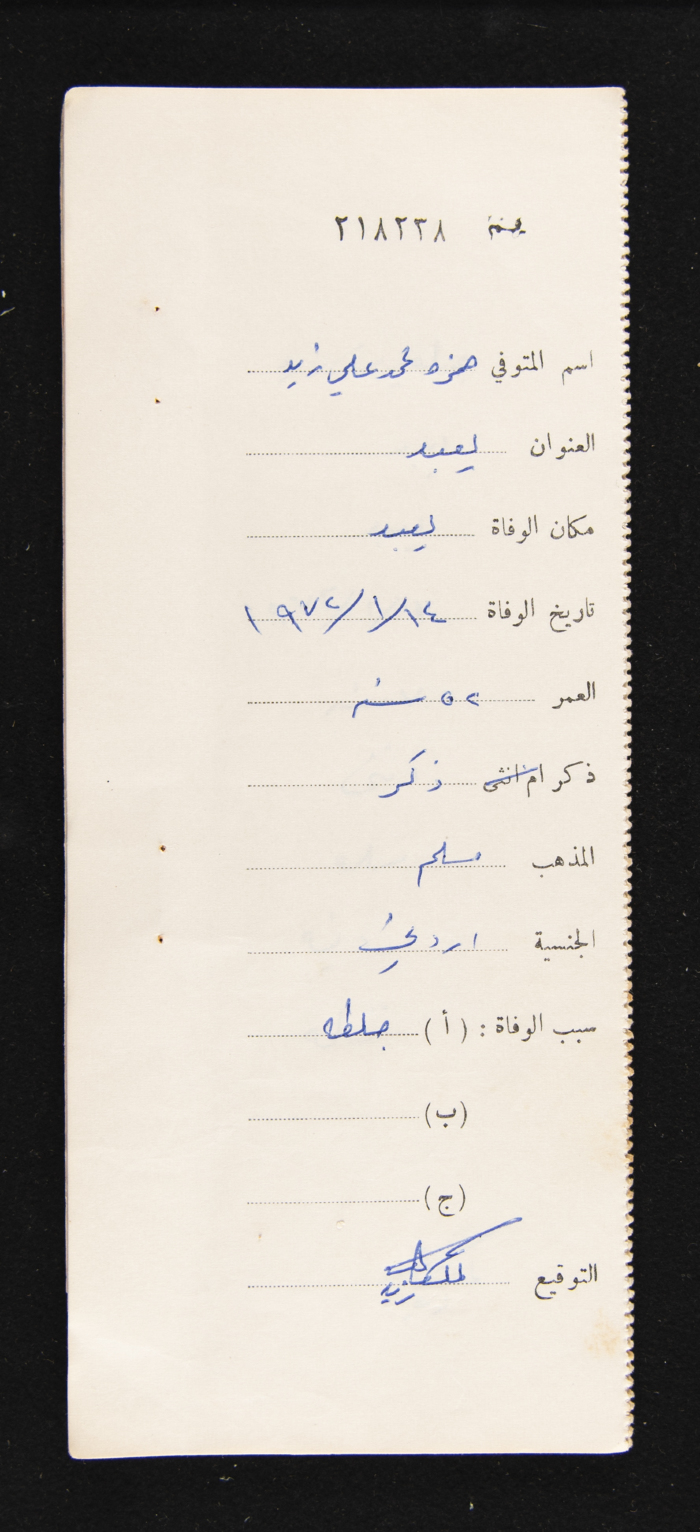 ٢١٨٢٣٨
اسم المتوفي حمزه محمد علي زيد
العنوان يعبد
مكان الوفاة يعبد
تاريخ الوفاة ١٩٧٢/١/١٤
العمر ٥٢ سنه
ذكر ام انثى ذكر
المذهب مسلم
الجنسية اردنيه
سبب الوفاة : ( أ ) جلطه
(ب)
(ج)
التوقيع